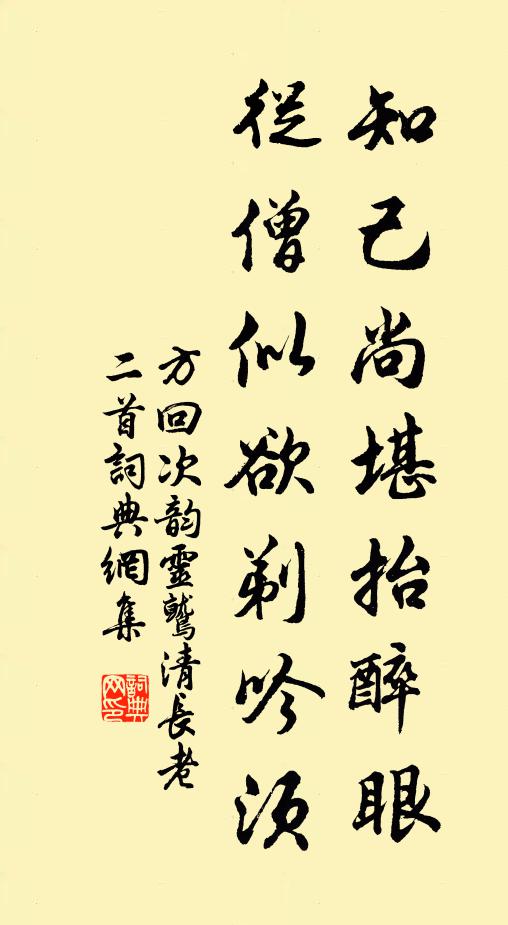 知己尚堪抬醉眼
從僧似欲剃吟须
方回次韵靈鷲清長老
二首詞典網集
詞典
网印